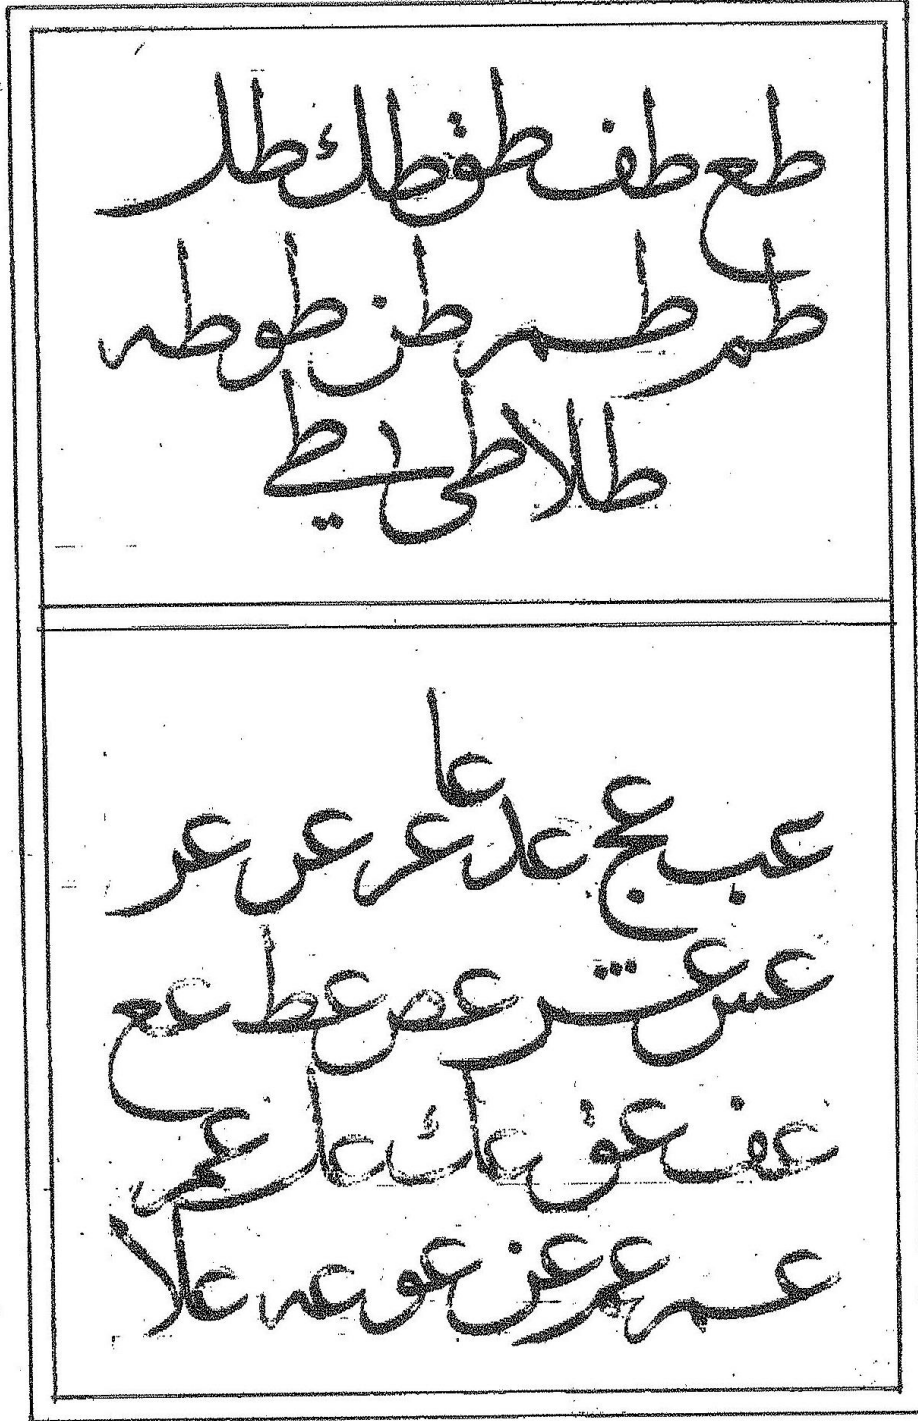 طع طف طق طك طل
طم طم طن طو طه
طلا طى طي
عا
عب عج عد عر عر عر
عس عش عص عط عع
عف عق عك عل عم
عم عم عن عو عه علا